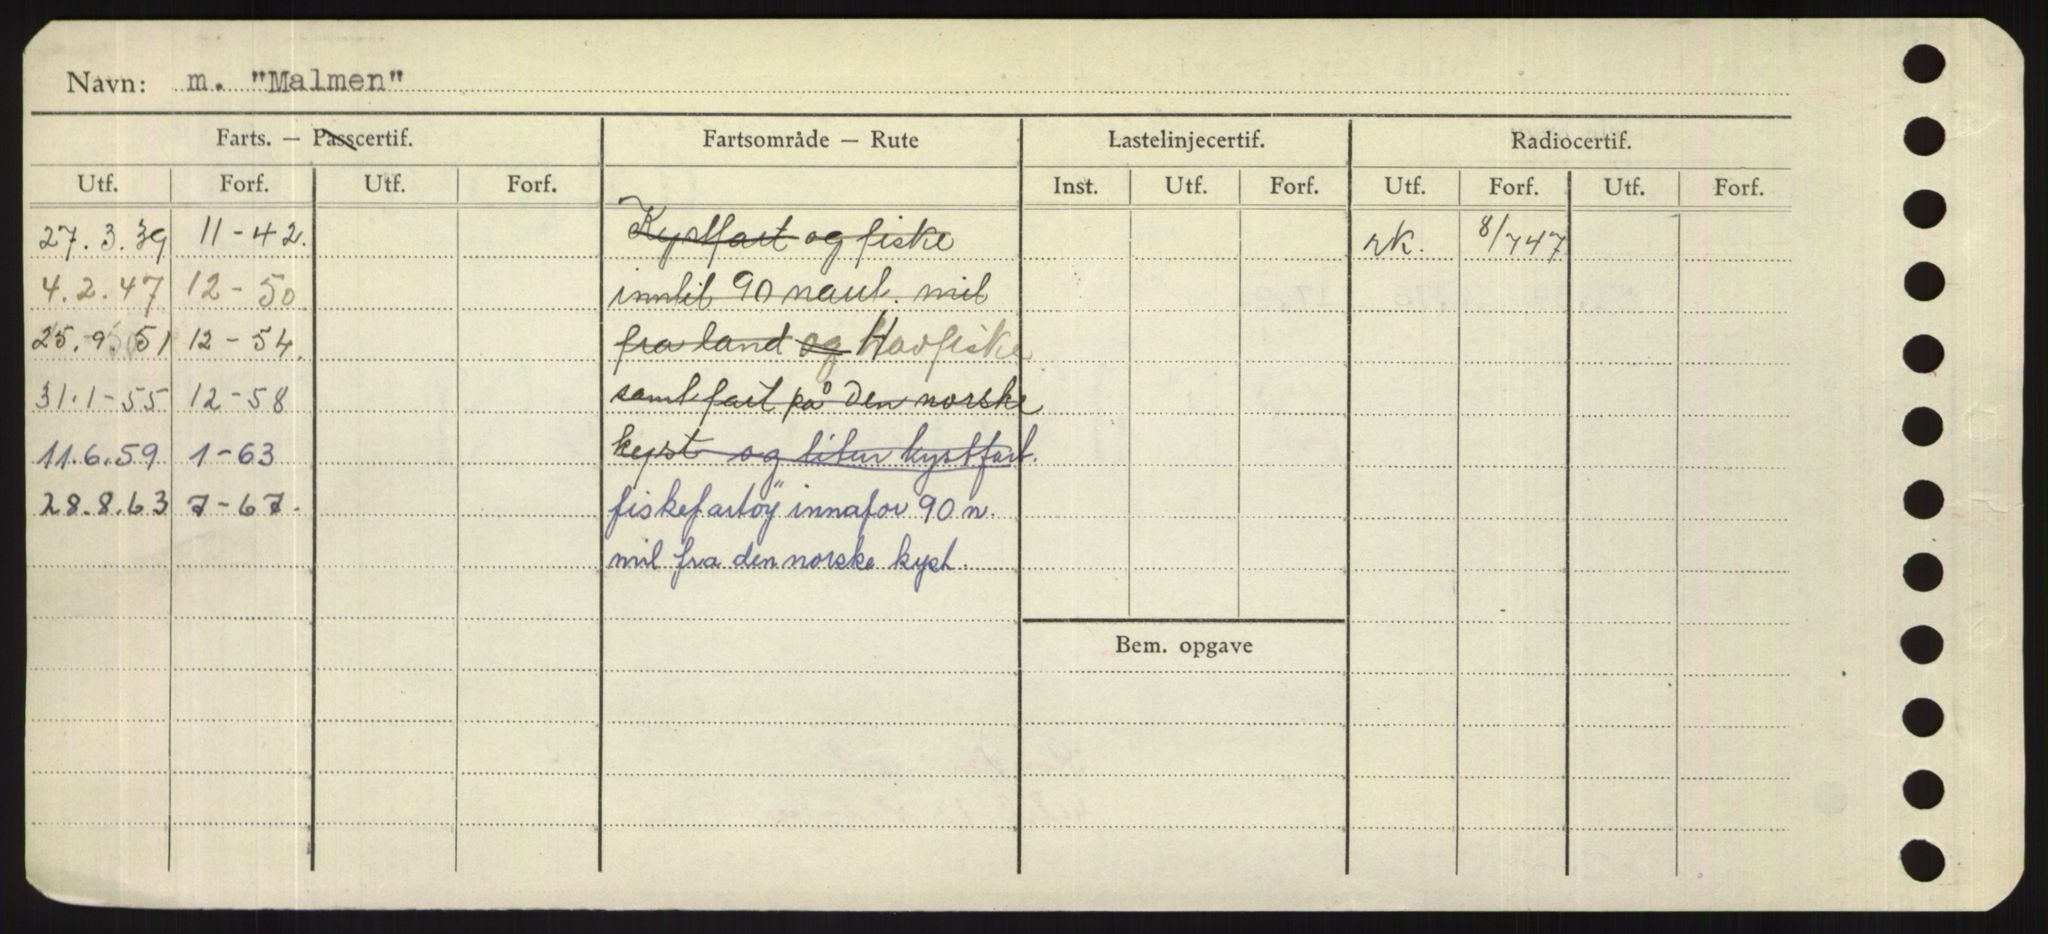 Navn: m. "Malmen"
Farts. — Passcertif. Fartsområde — Rute Lastelinjecertif. Radiocertif.
Utf. Forf. Utf. Forf. Inst. Utf. Forf. Utf. Forf. Utf. Forf.
27.3.39 11-42. Kystfart og fiske rk. 8/7 47
4.2.47 12-50 inntil 90 naut. mil
25.9.51 12-54. fra land og Havfiske
31.1-55 12-58 samt fart på den norske
11.6.59 1-63 kyst og liten kystfart.
28.8.63 7-67. fiskefartöy innafor 90 n.
mil fra den norske kyst.
Bem. opgave